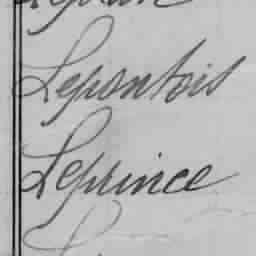 Lepontois
Leprince